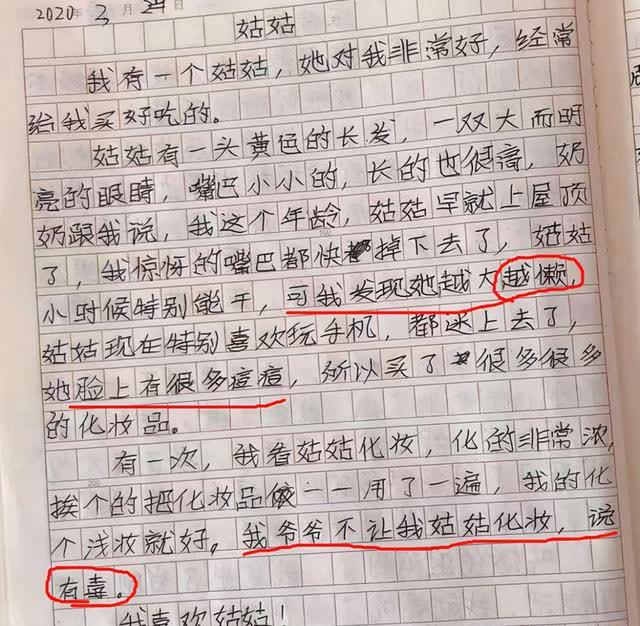 2020年 3月 24日
姑姑
我有一个姑姑，她对我非常好，经常
给我买好吃的。
姑姑有一头黄色的长发，一双大而明
亮的眼睛，嘴巴小小的，长的也很高，奶
奶跟我说，我这个年龄，姑姑早就上屋顶
了，我惊讶的嘴巴都快掉下去了，姑姑
小时候特别能干，可我发现她越大越懒，
姑姑现在特别喜欢玩手机，都迷上去了，
她脸上有很多痘痘，所以买了很多很多
的化妆品。
有一次，我看姑姑化妆，化的非常浓，
挨个的把化妆品一一用了一遍，我的化
个浅妆就好。我爷爷不让我姑姑化妆，说
有毒。
我喜欢姑姑！